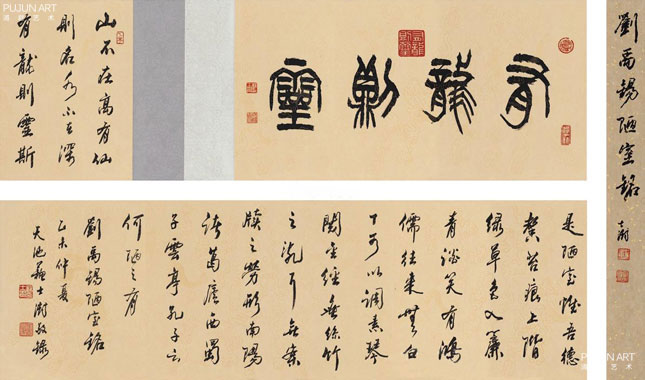 PUJUN ART
劉禹錫陋室銘
士澍
有龍則靈
山不在高有仙
則名水不在深
有龍則靈斯
是陋室惟吾德
馨苔痕上階
緑草色入簾
青談笑有鴻
儒往來無白
丁可以調素琴
閱金經無絲竹
之亂耳無案
牘之勞形南陽
諸葛廬西蜀
子雲亭孔子云
何陋之有
劉禹錫陋室銘
乙未仲夏
天池蘇士澍敬錄
PUJUN ART